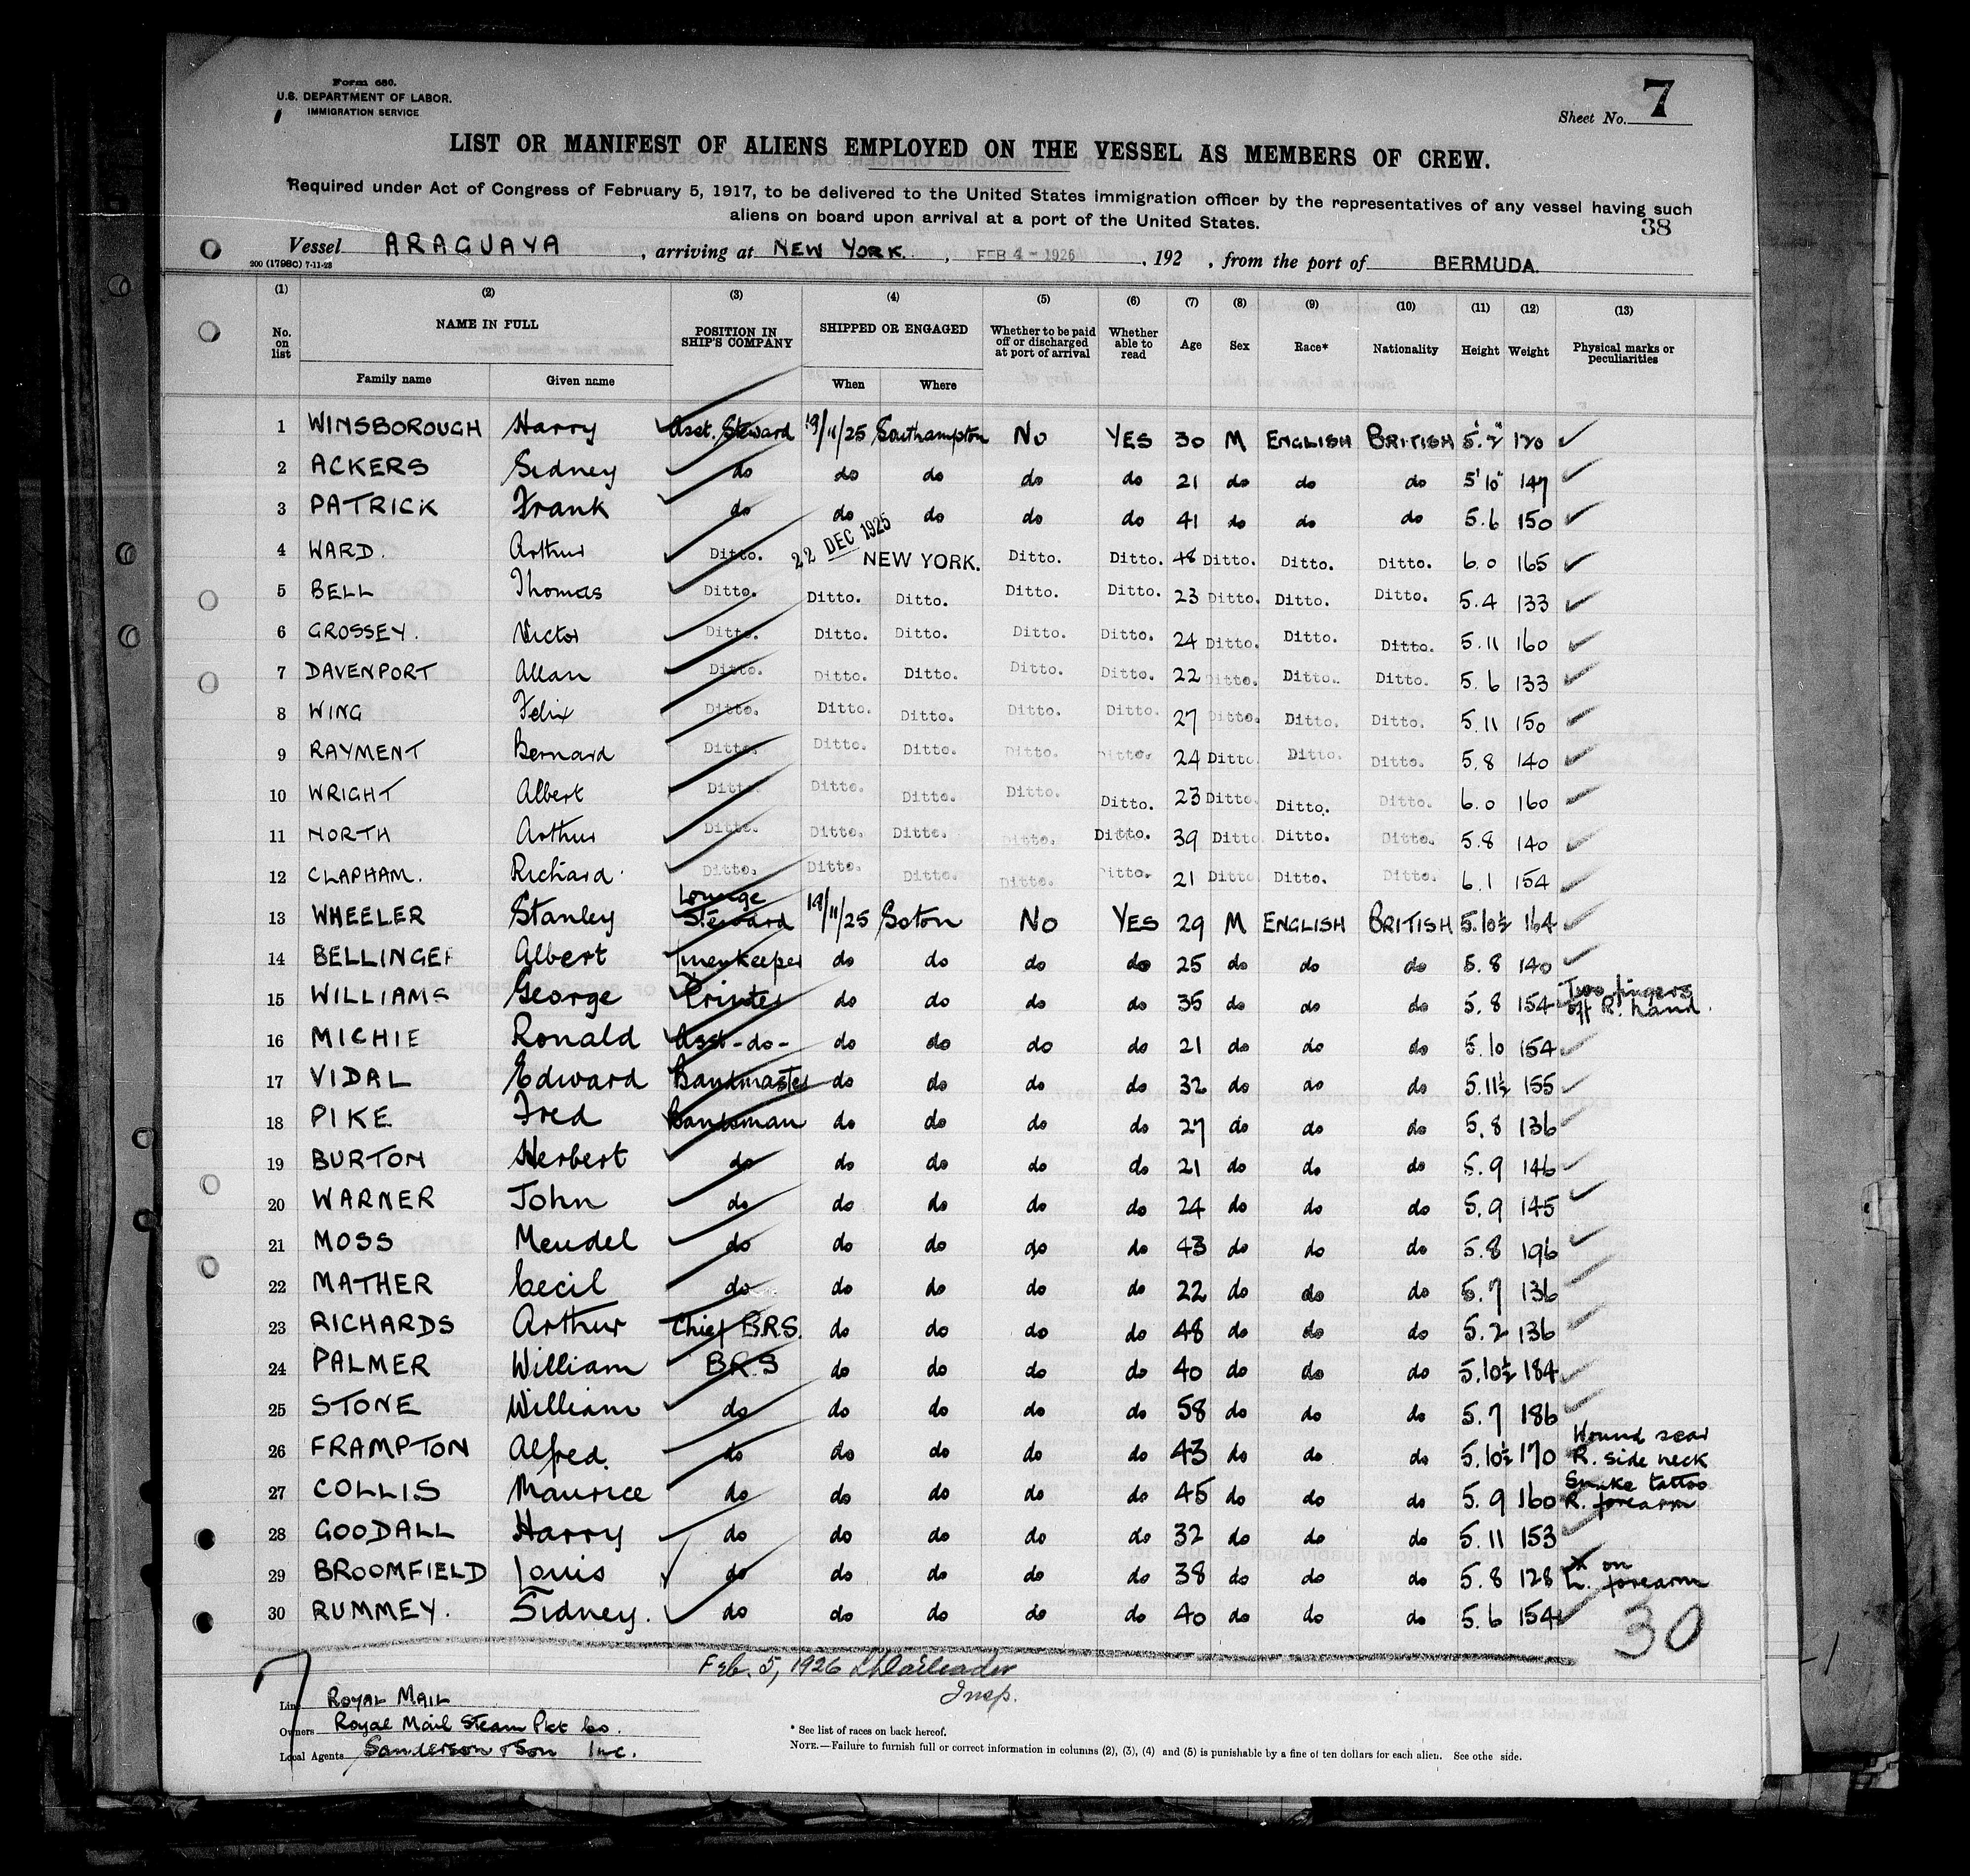 Form 680.
U.S. DEPARTMENT OF LABOR.
IMMIGRATION SERVICE
Sheet No. 7
LIST OR MANIFEST OF ALIENS EMPLOYED ON THE VESSEL AS MEMBERS OF CREW.
Required under Act of Congress of February 5, 1917, to be delivered to the United States immigration officer by the representatives of any vessel having such
aliens on board upon arrival at a port of the United States.
38
Vessel ARAGUAYA, arriving at NEW YORK., FEB 4 - 1926, 192 , from the port of BERMUDA.
(1) (2) (3) (4) (5) (6) (7) (8) (9) (10) (11) (12) (13)
No. on list NAME IN FULL POSITION IN SHIP'S COMPANY SHIPPED OR ENGAGED Whether to be paid off or discharged at port of arrival Whether able to read Age Sex Race* Nationality Height Weight Physical marks or peculiarities
Family name Given name When Where
1 WINSBOROUGH Harry Asst. Steward 19/11/25 Southampton No YES 30 M ENGLISH BRITISH 5'.2" 120
2 ACKERS Sidney do do do do do 21 do do do 5'10" 147
3 PATRICK Frank do do do do do 41 do do do 5.6 150
4 WARD. Arthur Ditto. 22 DEC 1925 NEW YORK. Ditto. Ditto. 48 Ditto. Ditto. Ditto. 6.0 165
5 BELL Thomas Ditto. Ditto. Ditto. Ditto. Ditto. 23 Ditto. Ditto. Ditto. 5.4 133
6 GROSSEY. Victor Ditto. Ditto. Ditto. Ditto. Ditto. 24 Ditto. Ditto. Ditto. 5.11 160
7 DAVENPORT Allan Ditto. Ditto. Ditto. Ditto. Ditto. 22 Ditto. Ditto. Ditto. 5.6 133
8 WING Felix Ditto. Ditto. Ditto. Ditto. Ditto. 27 Ditto. Ditto. Ditto. 5.11 150
9 RAYMENT Bernard Ditto. Ditto. Ditto. Ditto. Ditto. 24 Ditto. Ditto. Ditto. 5.8 140
10 WRIGHT Albert Ditto. Ditto. Ditto. Ditto. Ditto. 23 Ditto. Ditto. Ditto. 6.0 160
11 NORTH Arthur Ditto. Ditto. Ditto. Ditto. Ditto. 39 Ditto. Ditto. Ditto. 5.8 140
12 CLAPHAM. Richard Ditto. Ditto. Ditto. Ditto. Ditto. 21 Ditto. Ditto. Ditto. 6.1 154
13 WHEELER Stanley Lounge Steward 19/11/25 Soton No YES 29 M ENGLISH BRITISH 5.10½ 164
14 BELLINGER Albert Linenkeeper do do do do 25 do do do 5.8 140
15 WILLIAMS George Printer do do do do 35 do do do 5.8 154 Two fingers off R. hand.
16 MICHIE Ronald Asst -do- do do do do 21 do do do 5.10 154
17 VIDAL Edward Bandmaster do do do do 32 do do do 5.11½ 155
18 PIKE Fred Bandsman do do do do 27 do do do 5.8 136
19 BURTON Herbert do do do do do 21 do do do 5.9 146
20 WARNER John do do do do do 24 do do do 5.9 145
21 MOSS Mendel do do do do do 43 do do do 5.8 196
22 MATHER Cecil do do do do do 22 do do do 5.7 136
23 RICHARDS Arthur Chief B.R.S. do do do do 48 do do do 5.2 136
24 PALMER William B.R.S do do do do 40 do do do 5.10½ 184
25 STONE William do do do do do 58 do do do 5.7 186
26 FRAMPTON Alfred. do do do do do 43 do do do 5.10½ 170 Wound scar R. side neck
27 COLLIS Maurice do do do do do 45 do do do 5.9 160 Snake tattoo R. forearm
28 GOODALL Harry do do do do do 32 do do do 5.11 153
29 BROOMFIELD Louis do do do do do 38 do do do 5.8 128 on L. forearm
30 RUMMEY. Sidney. do do do do do 40 do do do 5.6 154
30
Feb. 5, 1926
Insp.
Line ROYAL MAIL
Owners Royal Mail Steam Pkt Co.
Local Agents Sanderson & Son Inc.
* See list of races on back hereof.
NOTE.—Failure to furnish full or correct information in columns (2), (3), (4) and (5) is punishable by a fine of ten dollars for each alien. See othe side.
200 (1798C) 7-11-23